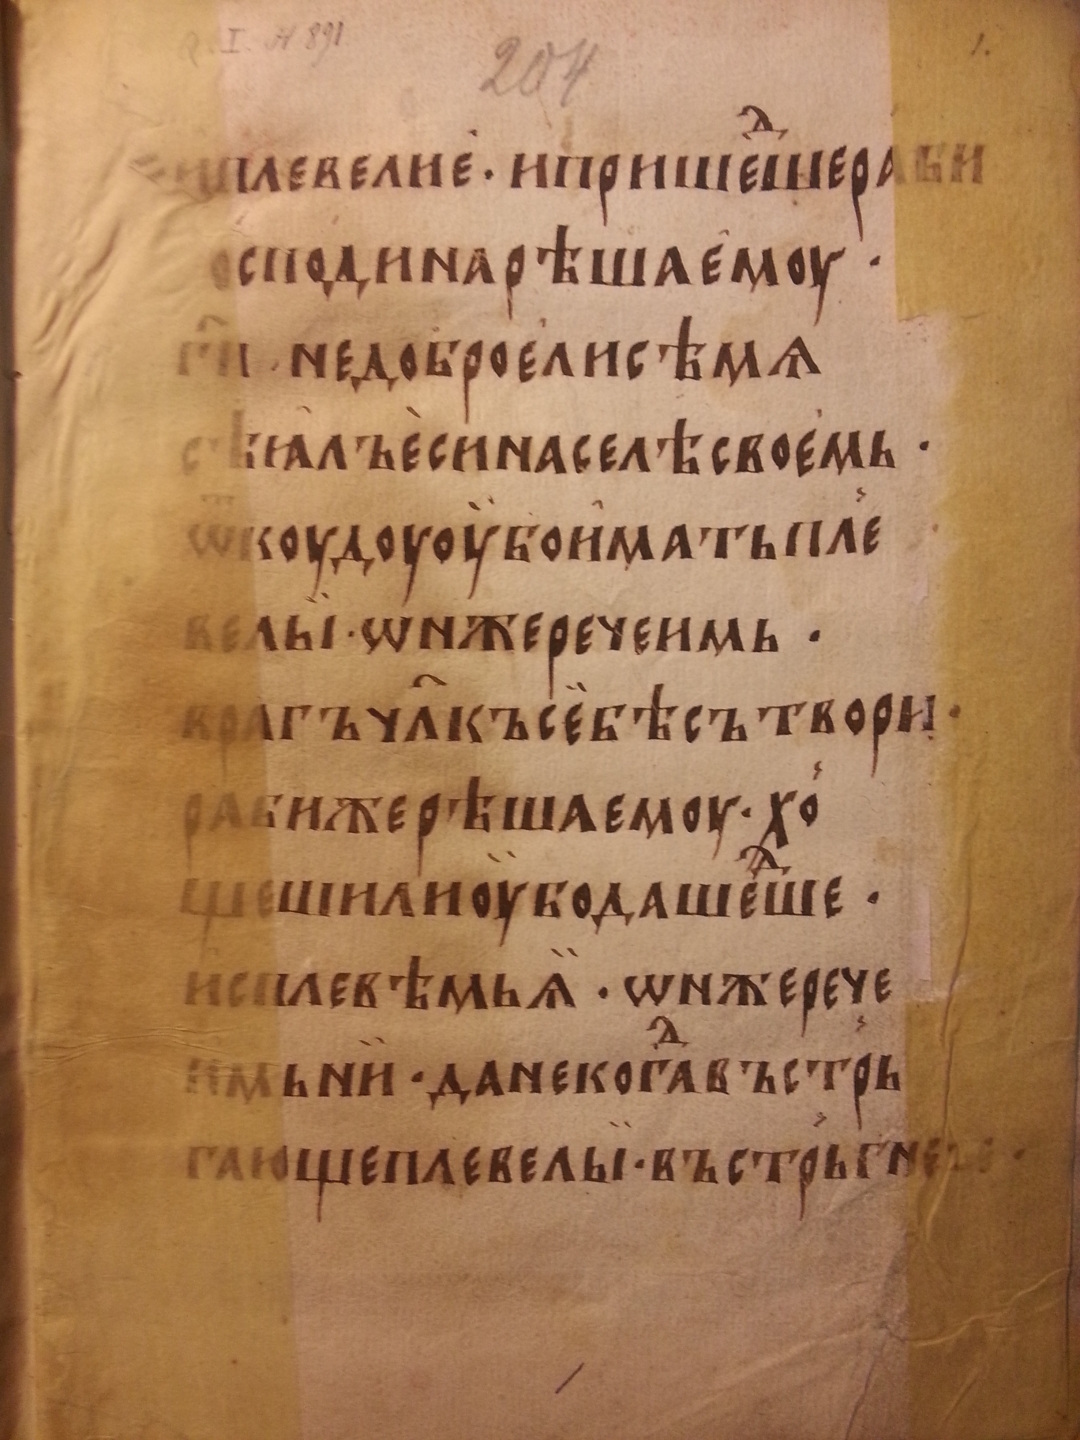 Q. I. N 891
204
1.
иплевелие · ипришєⷣшераби
осподинарѣшаемоу ·
г҃и · недоброелисѣмѧ
сѣꙗлъесинаселѣсвоемь ·
ѿкоудоуоубоиматьпле
велыі · ѡнжеречеимь ·
врагъчл҃късебѣсътвори ·
рабижерѣшаемоу · хо
щешилиоубодашеⷣше ·
исплевѣмьѧ · ѡнжерече
имьни · данекогⷣавъстрь
гающеплевелыі · въстрьгнете ·